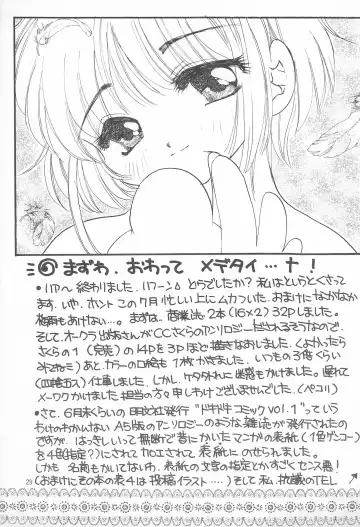 ⑥ まずわ、おわって メデタイ…†!
●いや〜 終わりました、 どうでしたか? 私はというとくさって
ます、いや、ホント この7月 忙しい上にムカついた、おまけになかなか
梅雨もあけない…。まずは、商業誌 2本(16×2) 32Pしました。
そして、オークラ出版さんがCCさくらのアンソロジーだされるそうなので、
さくらの1 (完売) の14Pを3Pほど描きなおしました。(よかったら
みてみてネ) あと、カラーの口絵も1枚かきました。いつもの3倍くらい
仕事しました。しかし、ケタタがれに迷惑もかけました。遅れて
メーワクかけました担当の方、申しわけございませんでした。(ペコリ)
●さて、6月末くらいの 明文社発行 "ドキドキコミックvol.1" ってい
うわけのわからない A5版のアンソロジーのような雑誌が発行されたの
ですが、はっきしいって無断で昔にかいたマンガの表紙(1色ゲンコー)
を4色(指定?)にされて カエされて 表紙にのせられました。
しかも 名前もかいてないわ、表紙の文言の指定とかすごくセンス悪!
(おまけにその本の表4は投稿イラスト…) そして私、抗議のTEL
29